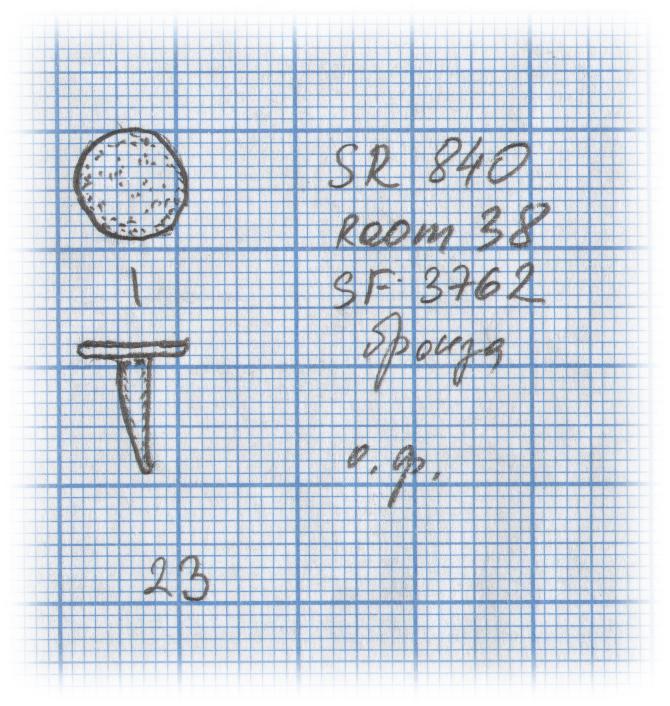 SR 840
Room 38
SF 3762
бронза
о. ф.
23